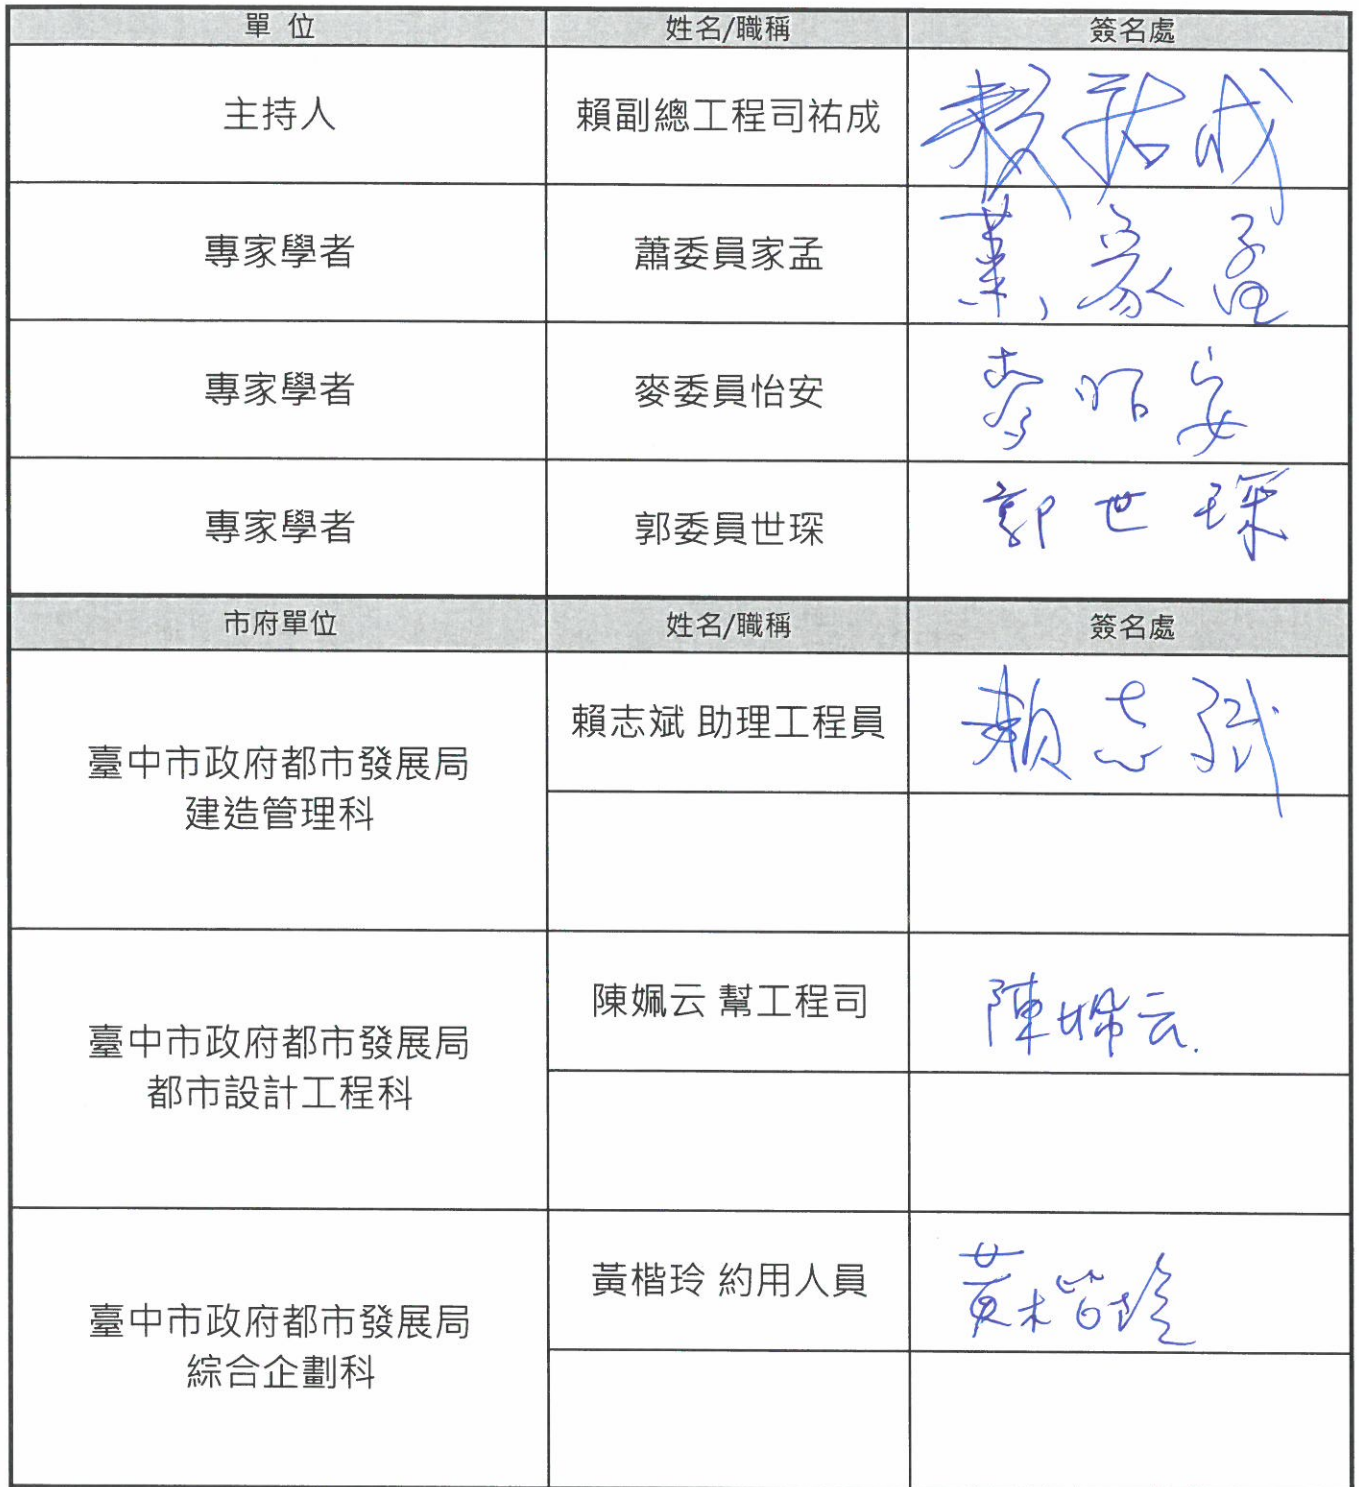 單 位 姓名/職稱 簽名處
主持人 賴副總工程司祐成 賴祐成
專家學者 蕭委員家孟 蕭家孟
專家學者 麥委員怡安 麥怡安
專家學者 郭委員世琛 郭世琛
市府單位 姓名/職稱 簽名處
臺中市政府都市發展局
建造管理科
賴志斌 助理工程員 賴志斌
臺中市政府都市發展局
都市設計工程科
陳姵云 幫工程司 陳姵云
臺中市政府都市發展局
綜合企劃科
黃楷玲 約用人員 黃楷玲